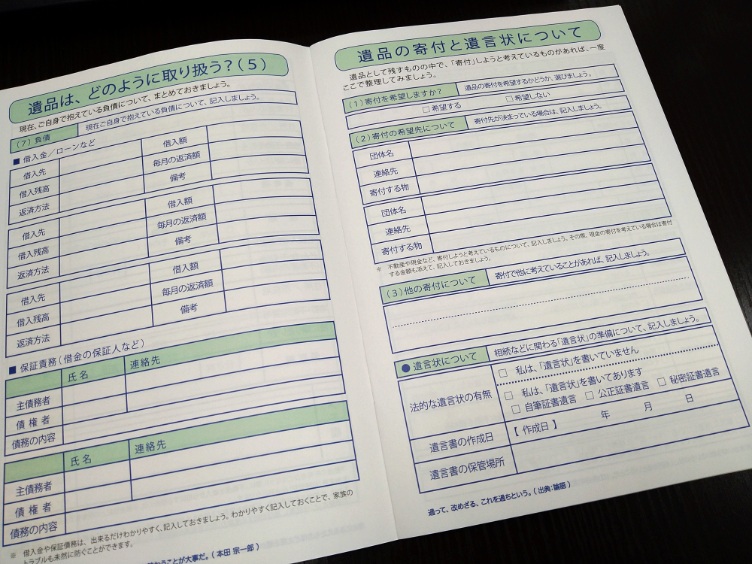 遺品は、どのように取り扱う?(5)
現在、ご自身で抱えている負債について、まとめておきましょう。
(7)負債
現在ご自身で抱えている負債について、記入しましょう。
■ 借入金/ローンなど
借入先
借入額
借入残高
毎月の返済額
返済方法
備考
借入先
借入額
借入残高
毎月の返済額
返済方法
備考
借入先
借入額
借入残高
毎月の返済額
返済方法
備考
■ 保証債務(借金の保証人など)
氏名
連絡先
主債務者
債権者
債務の内容
氏名
連絡先
主債務者
債権者
債務の内容
※ 借入金や保証債務は、出来るだけわかりやすく、記入しておきましょう。わかりやすく記入しておくことで、家族の
トラブルも未然に防ぐことができます。
ことが大事だ。(本田 宗一郎)
遺品の寄付と遺言状について
遺品として残すものの中で、「寄付」しようと考えているものがあれば、一度
ここで整理してみましょう。
(1)寄付を希望しますか?
遺品の寄付を希望するかどうか、選びましょう。
□ 希望する
□ 希望しない
(2)寄付の希望先について
寄付先が決まっている場合は、記入しましょう。
団体名
連絡先
寄付する物
団体名
連絡先
寄付する物
※ 不動産や現金など、寄付しようと考えているものについて、記入しましょう。その際、現金の寄付を考えている場合は寄付
する金額も添えて、記入しておきましょう。
(3)他の寄付について
寄付で他に考えていることがあれば、記入しましょう。
● 遺言状について
相続などに関わる「遺言状」の準備について、記入しましょう。
法的な遺言状の有無
□ 私は、「遺言状」を書いていません
□ 私は、「遺言状」を書いてあります
□ 自筆証書遺言 □ 公正証書遺言 □ 秘密証書遺言
遺言書の作成日
【 作成日 】 年 月 日
遺言書の保管場所
過って、改めざる、これを過ちという。(出典:論語)